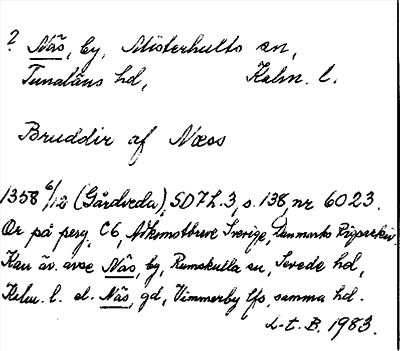 ? Näs, by, Misterhults sn,
Tunaläns hd, Kalm. l.
Bruddir af Næss
1358 6/12 (Gårdveda), SD7h.3, s. 138, nr 6023.
Or på perg, C6, Adkomstbreve Sverige, Danmarks Rigsarkiv.
Kan äv. avse Näs, by, Rumskulla sn, Sevede hd,
Kalm. l. el. Näs, gd, Vimmerby lfs, samma hd.
L-t. B. 1983.